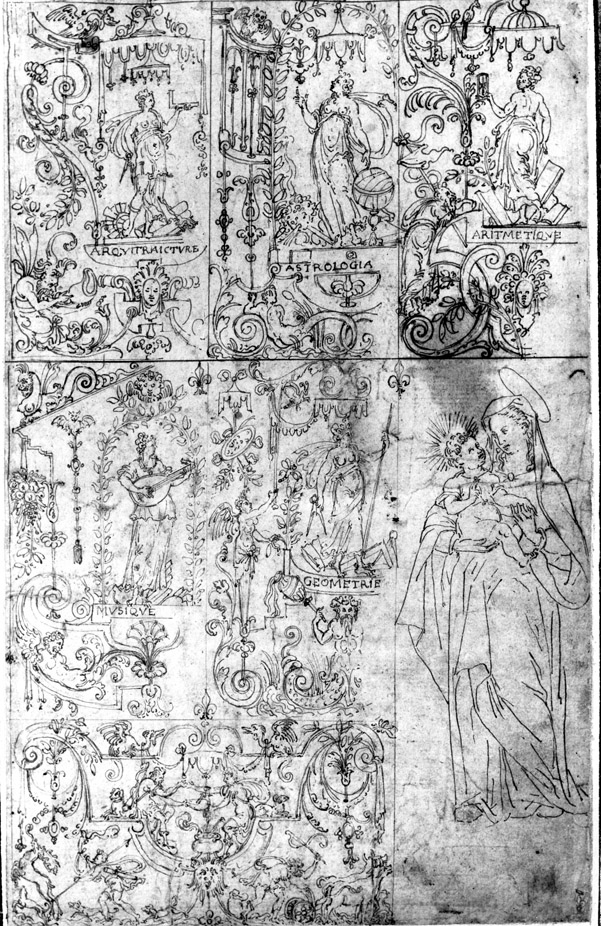 ARQVITRAICTVRE
ASTROLOGIA
ARITMETIQVE
MVSIQVE
GEOMETRIE